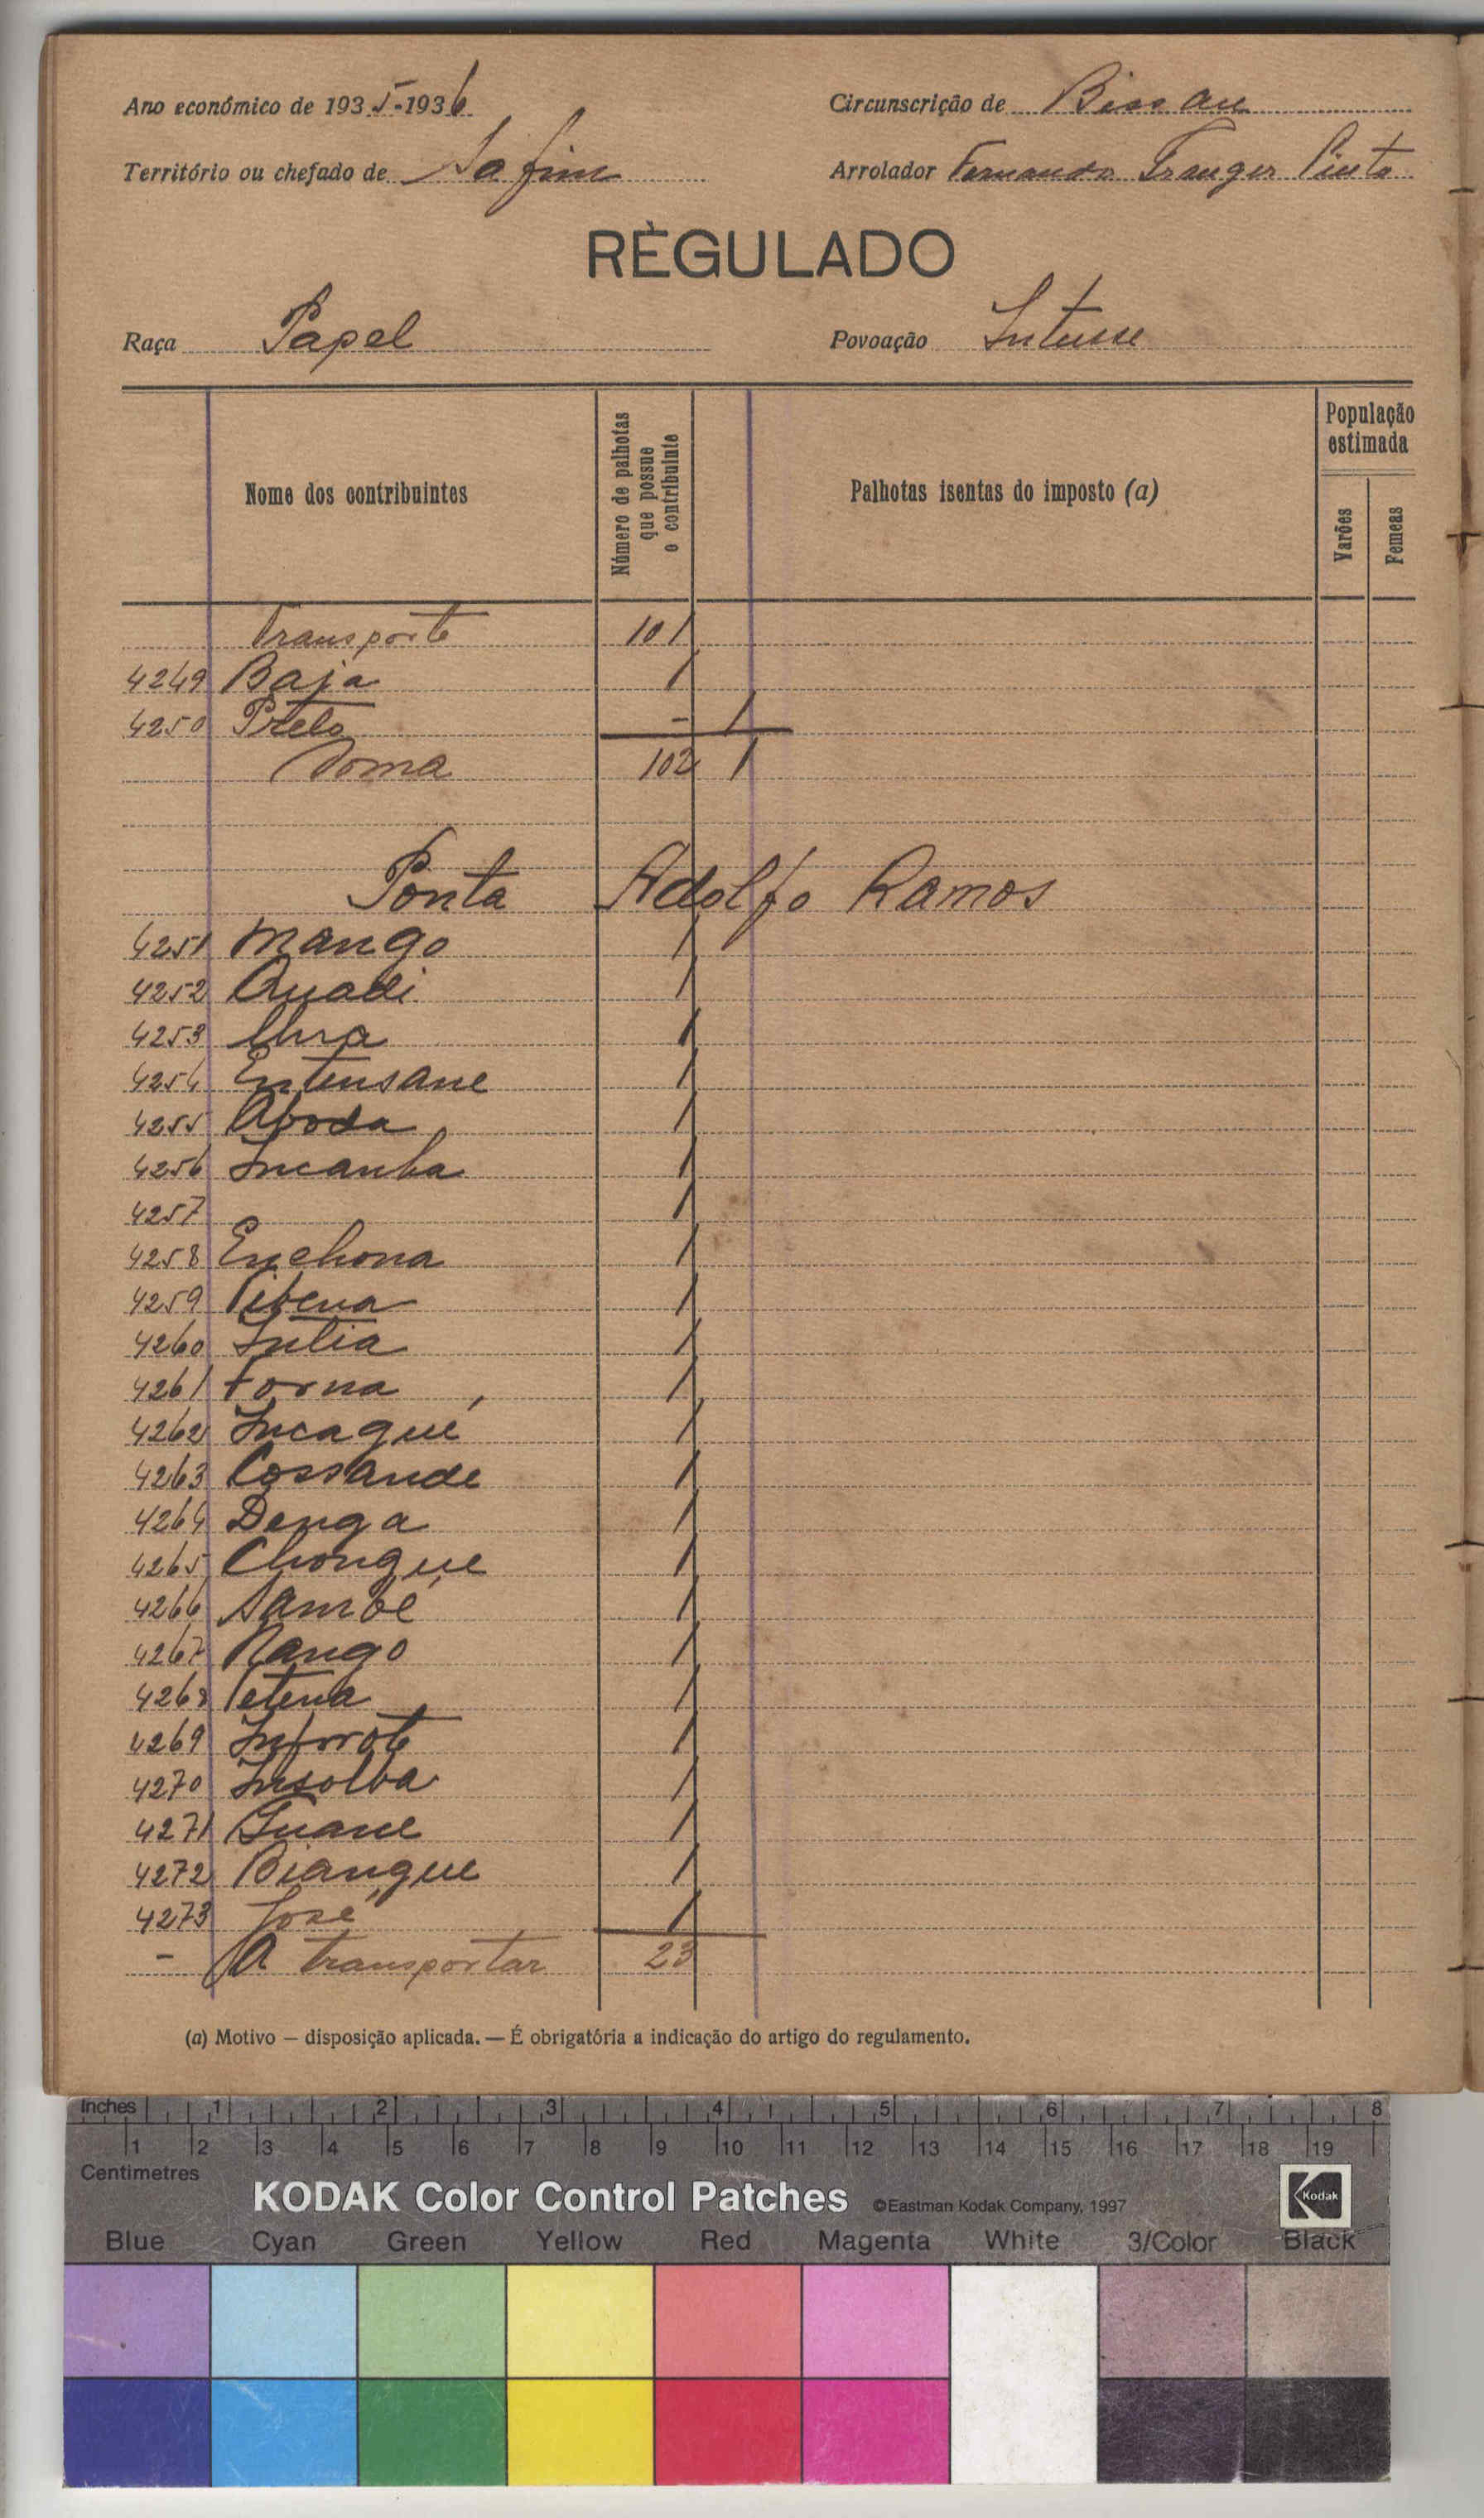 Ano económico de 1935-1936 Circunscrição de Bissau
Território ou chefado de Safim Arrolador Fernando Pinto
RÈGULADO
Raça Papel Povoação Intusse
Nome dos contribuintes
Número de palhotas que possue o contribuinte
Palhotas isentas do imposto (a)
População estimada
Varões
Femeas
Transporte 101
4249 Baja 1
4250 Preto - 1
Soma 102 1
Ponta Adolfo Ramos
4251 Mango 1
4252 Quadi 1
4253 1
4254 Entensane 1
4255 Aboda 1
4256 Incanha 1
4257 1
4258 Enchona 1
4259 1
4260 1
4261 Forna 1
4262 Incagué 1
4263 Cossande 1
4264 Denga 1
4265 Chongue 1
4266 Sambé 1
4267 Nango 1
4268 1
4269 1
4270 Insolba 1
4271 1
4272 Biangue 1
4273 José 1
- A transportar 23
(a) Motivo — disposição aplicada. — É obrigatória a indicação do artigo do regulamento.
Inches 1 2 3 4 5 6 7 8
1 2 3 4 5 6 7 8 9 10 11 12 13 14 15 16 17 18 19
Centimetres
KODAK Color Control Patches ©Eastman Kodak Company, 1997 Kodak
Blue Cyan Green Yellow Red Magenta White 3/Color Black